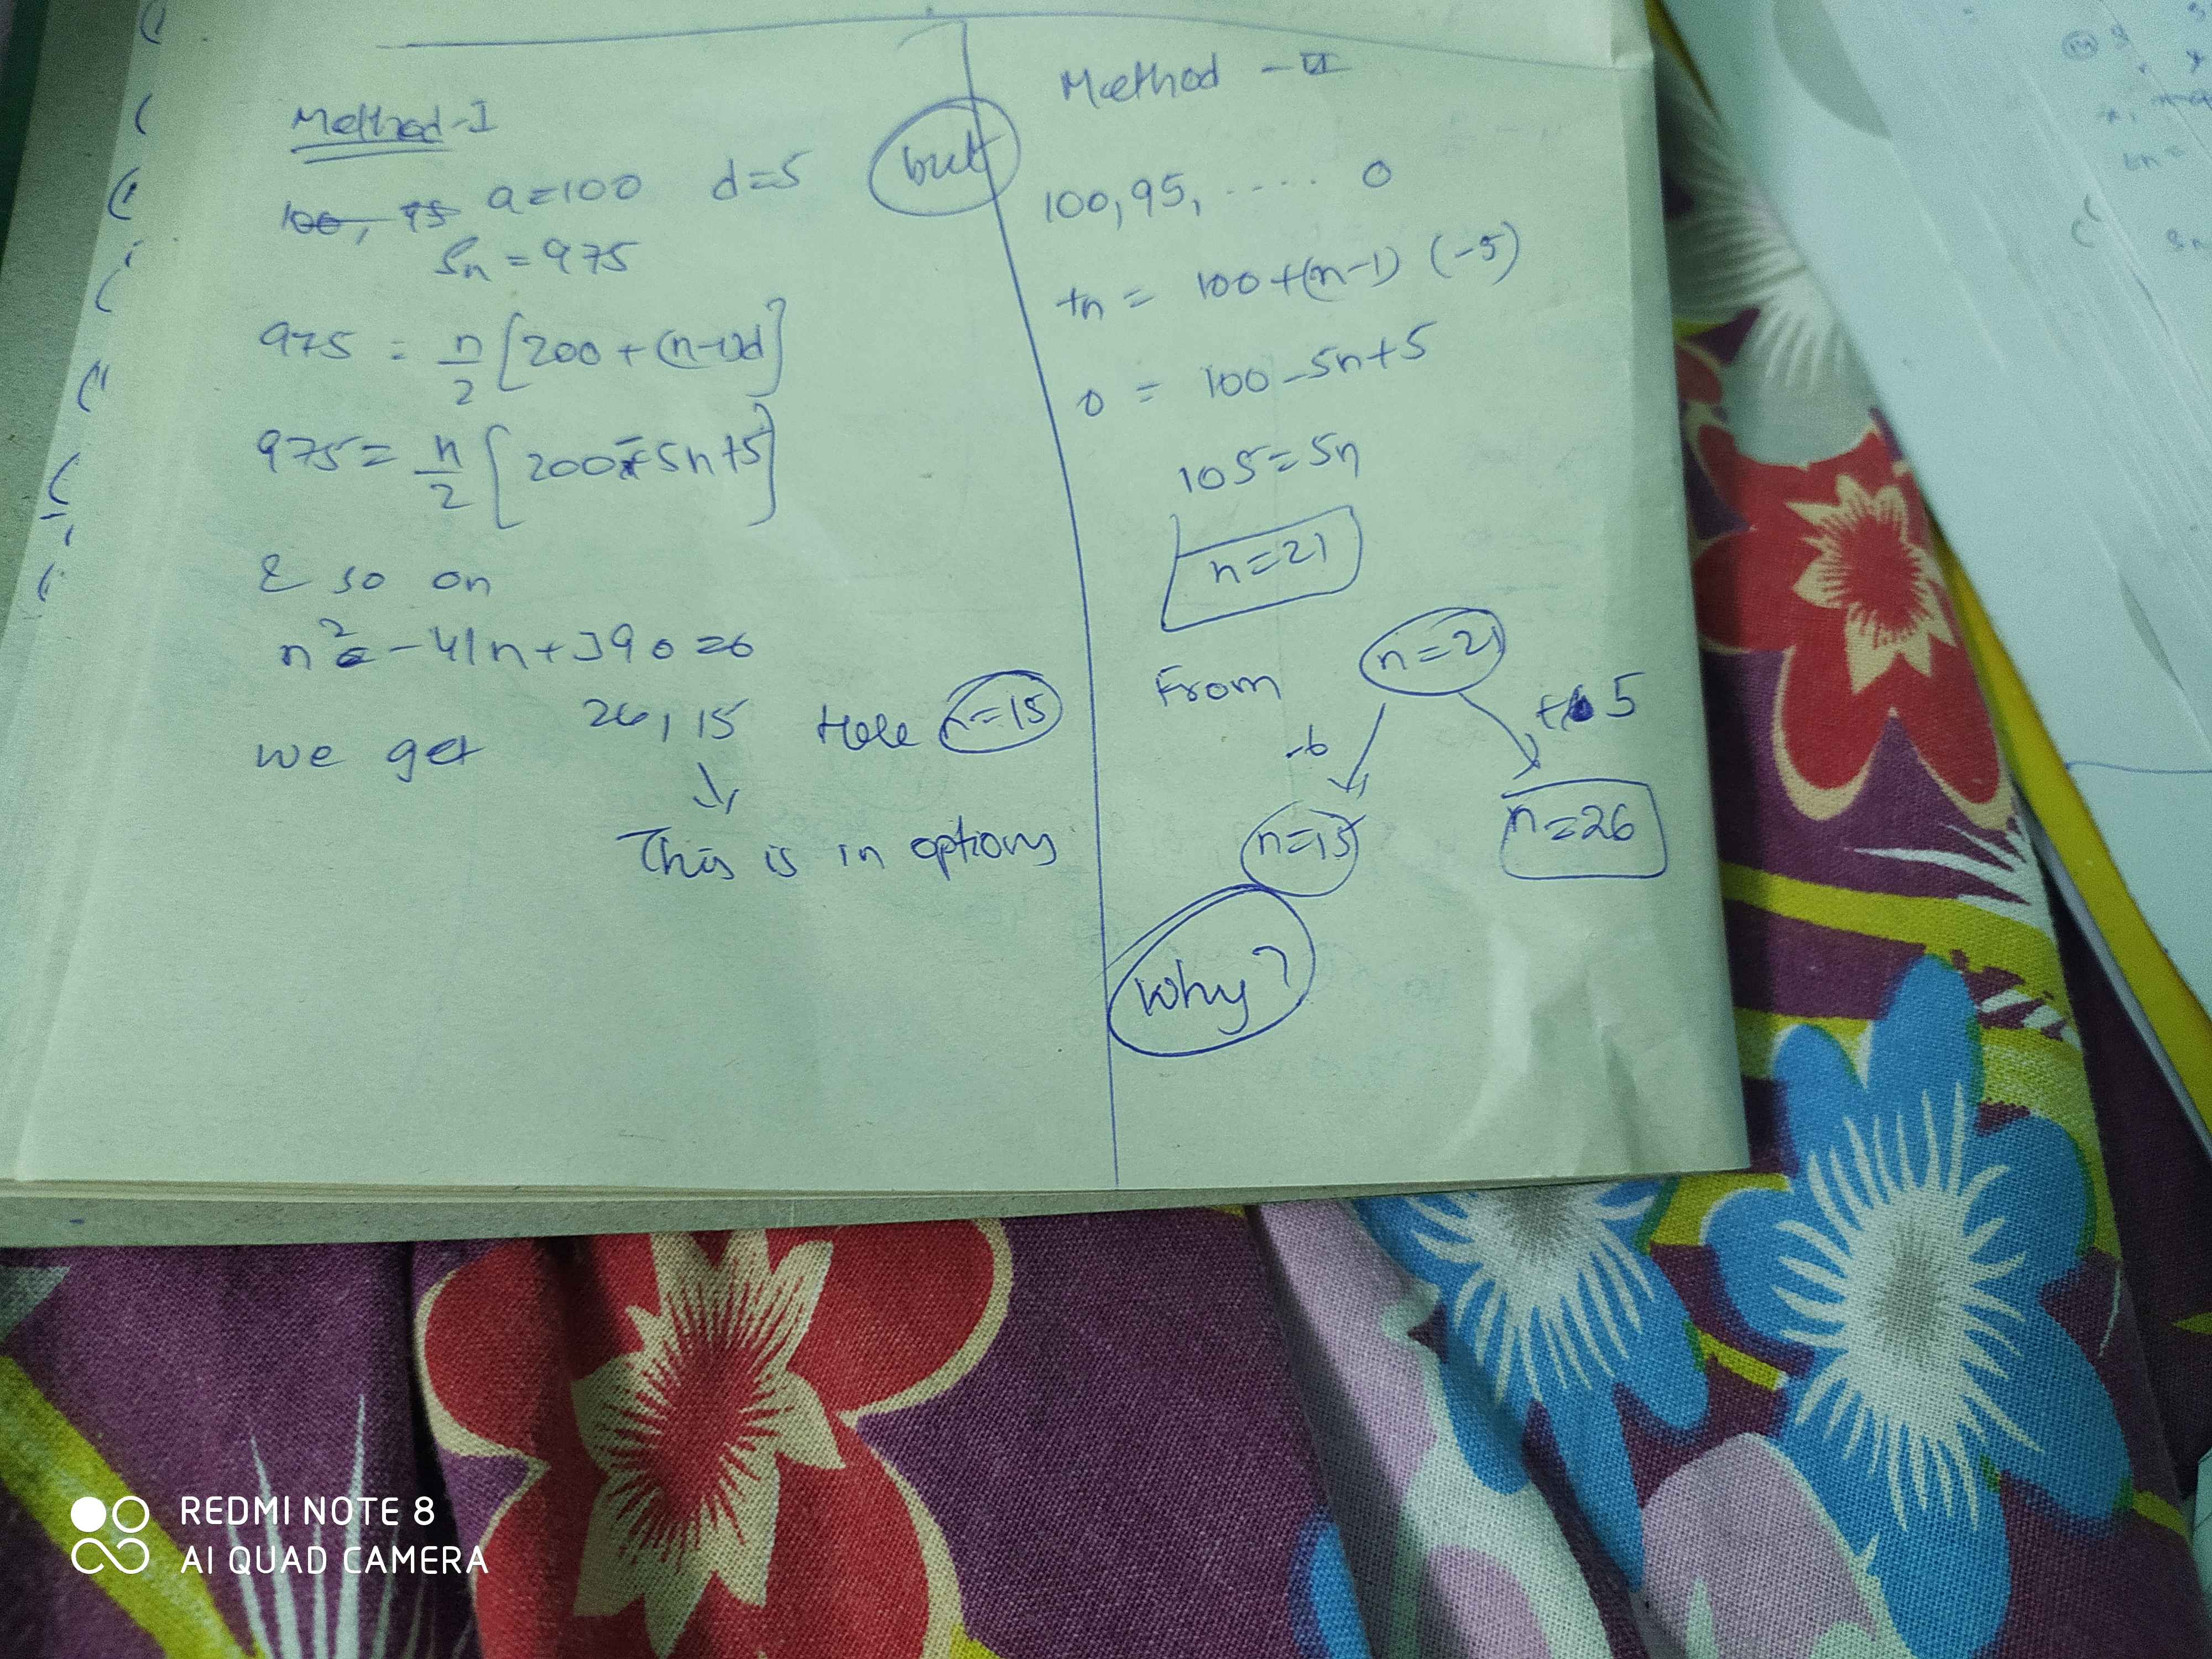 Method-I
100, 95 a=100 d=5
Sn = 975
975 = n/2 [200 + (n-1)d]
975 = n/2 [200 - 5n + 5]
& so on
n² - 41n + 390 = 0
we get 26, 15 Here n=15
↓
This is in options
but
Method - II
100, 95, ..... 0
tn = 100 + (n-1) (-5)
0 = 100 - 5n + 5
105 = 5n
n = 21
From n = 21
-6 +5
n=15 n=26
Why?
REDMI NOTE 8
AI QUAD CAMERA